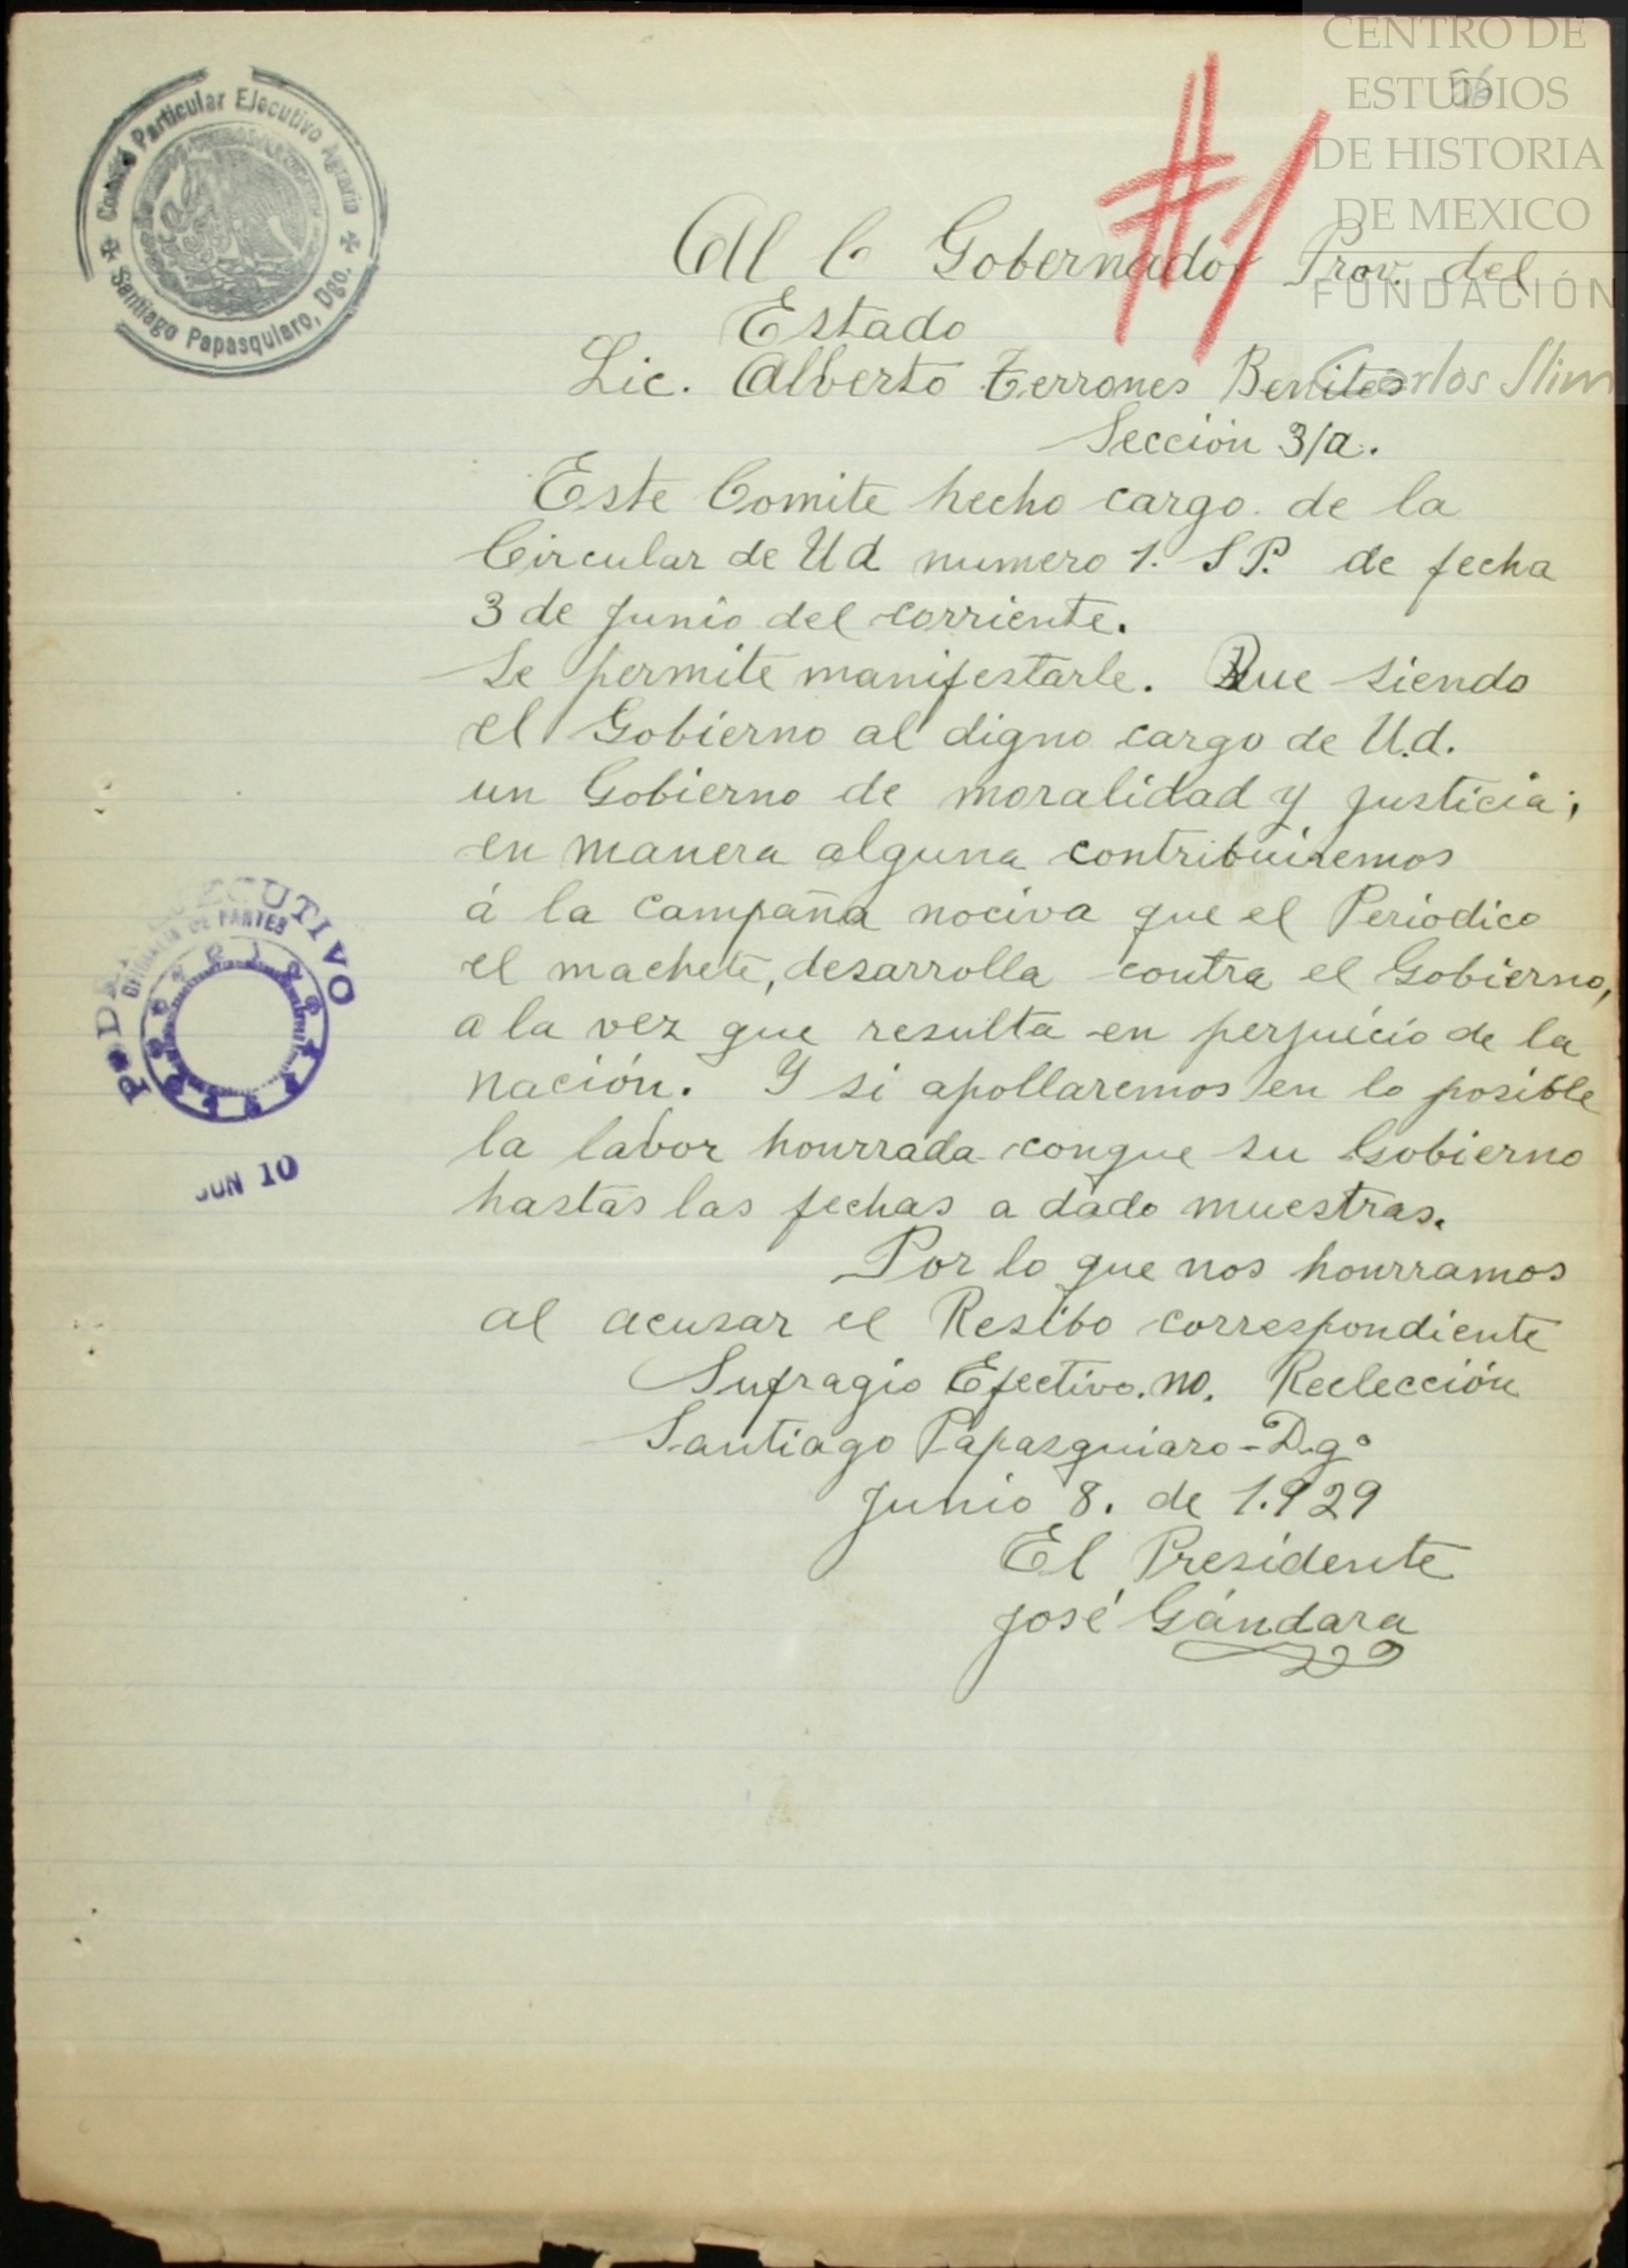 CENTRO DE
ESTUDIOS
DE HISTORIA
DE MEXICO
FUNDACIÓN
Carlos Slim
56
#1
Comité Particular Ejecutivo Agrario
Santiago Papasquiaro, Dgo.
Al C Gobernador Prov. del
Estado
Lic. Alberto Terrones Benites
Sección 3/a.
Este Comite hecho cargo. de la
Circular de Ud numero 1. S P. de fecha
3 de Junio del corriente.
Se permite manifestarle. Que siendo
el Gobierno al digno cargo de U.d.
un Gobierno de moralidad y justicia;
en manera alguna contribuiremos
á la campaña nociva que el Periodico
el machete, desarrolla contra el Gobierno,
a la vez que resulta en perjuicio de la
nación. Y si apollaremos en lo posible
la labor hourrada conque su Gobierno
hastas las fechas a dado muestras.
Por lo que nos hourramos
al acusar el Resibo correspondiente
Sufragio Efectivo. no. Reelección
Santiago Papasquiaro - D.gº
Junio 8. de 1.929
El Presidente
José Gándara
PODER EJECUTIVO
OFICIALIA DE PARTES
JUN 10